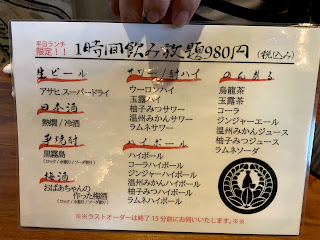 平日ランチ
限定!!
1時間飲み放題980円(税込み)
生ビール
アサヒ スーパードライ
日本酒
熱燗/冷酒
芋焼酎
黒霧島
(ロック/水割り/ソーダ割り)
梅酒
おばあちゃんの
作った梅酒
(ロック/水割り/ソーダ割り)
サワー/酎ハイ
ウーロンハイ
玉露ハイ
コークハイ
柚子みつサワー
温州みかんサワー
ラムネサワー
ハイボール
ハイボール
コーラハイボール
ジンジャーハイボール
温州みかんハイボール
柚子みつハイボール
ラムネハイボール
のんある
烏龍茶
玉露茶
コーラ
ジンジャーエール
温州みかんジュース
柚子みつジュース
ラムネソーダ
※※ラストオーダーは終了15分前にお伺いいたします。※※